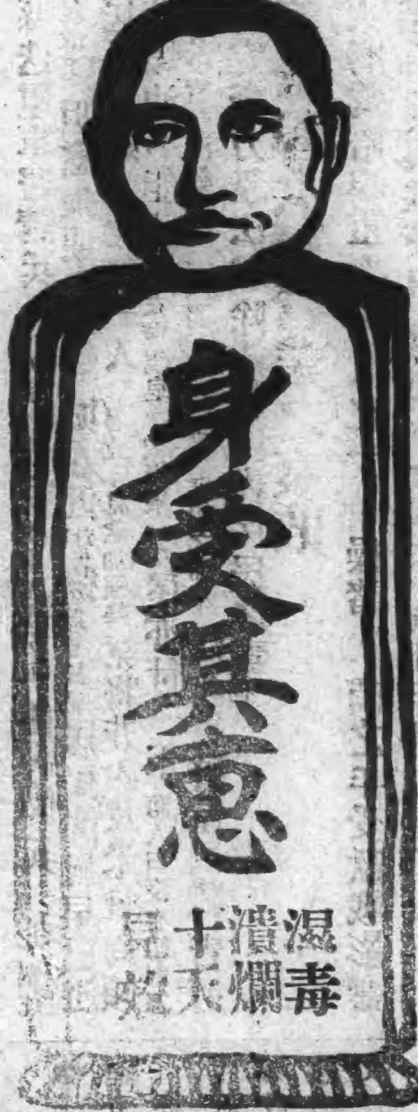 身受其惠
湿毒
潰爛
十天
見